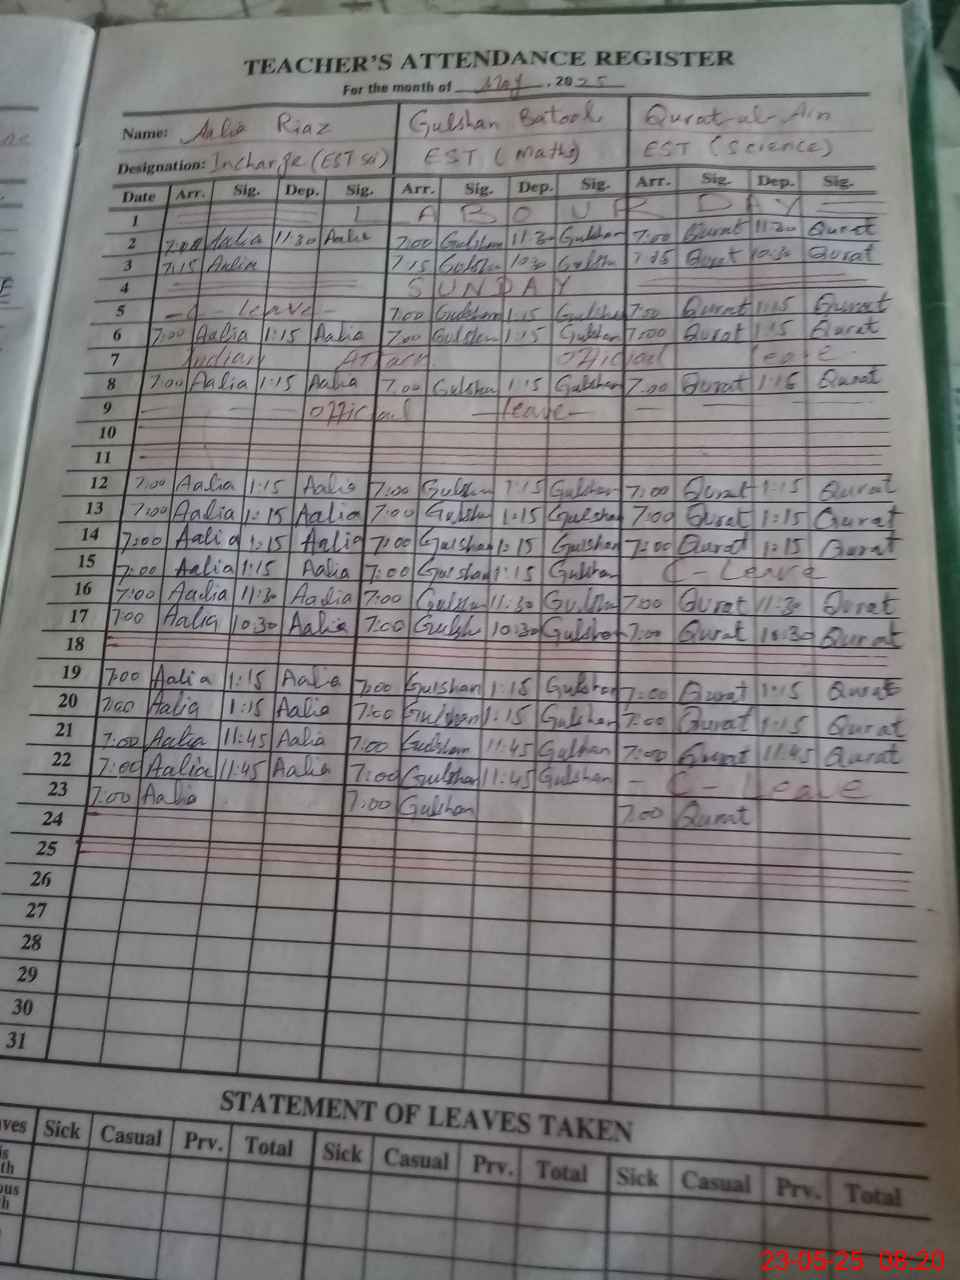 TEACHER'S ATTENDANCE REGISTER
For the month of May, 2025
Name: Aalia Riaz Gulshan Batool Qurat-ul-Ain
Designation: Incharge (EST Sci) EST (Maths) EST (Science)
Date Arr. Sig. Dep. Sig. Arr. Sig. Dep. Sig. Arr. Sig. Dep. Sig.
1 L A B O U R DAY
2 7:00 Aalia 11:30 Aalia 7:00 Gulshan 11:30 Gulshan 7:00 Qurat 11:30 Qurat
3 7:15 Aalia 7:15 Gulshan 10:30 Gulshan 7:15 Qurat 10:30 Qurat
4 SUNDAY
5 - C - leave - 7:00 Gulshan 1:15 Gulshan 7:00 Qurat 1:15 Qurat
6 7:00 Aalia 1:15 Aalia 7:00 Gulshan 1:15 Gulshan 7:00 Qurat 1:15 Qurat
7 Indian Attack official leave
8 7:00 Aalia 1:15 Aalia 7:00 Gulshan 1:15 Gulshan 7:00 Qurat 1:15 Qurat
9 official - leave -
10
11
12 7:00 Aalia 1:15 Aalia 7:00 Gulshan 1:15 Gulshan 7:00 Qurat 1:15 Qurat
13 7:00 Aalia 1:15 Aalia 7:00 Gulshan 1:15 Gulshan 7:00 Qurat 1:15 Qurat
14 7:00 Aalia 1:15 Aalia 7:00 Gulshan 1:15 Gulshan 7:00 Qurat 1:15 Qurat
15 7:00 Aalia 1:15 Aalia 7:00 Gulshan 1:15 Gulshan C - Leave
16 7:00 Aalia 11:30 Aalia 7:00 Gulshan 11:30 Gulshan 7:00 Qurat 11:30 Qurat
17 7:00 Aalia 10:30 Aalia 7:00 Gulshan 10:30 Gulshan 7:00 Qurat 10:30 Qurat
18
19 7:00 Aalia 1:15 Aalia 7:00 Gulshan 1:15 Gulshan 7:00 Qurat 1:15 Qurat
20 7:00 Aalia 1:15 Aalia 7:00 Gulshan 1:15 Gulshan 7:00 Qurat 1:15 Qurat
21 7:00 Aalia 11:45 Aalia 7:00 Gulshan 11:45 Gulshan 7:00 Qurat 11:45 Qurat
22 7:00 Aalia 11:45 Aalia 7:00 Gulshan 11:45 Gulshan - C - Leave
23 7:00 Aalia 7:00 Gulshan 7:00 Qurat
24
25
26
27
28
29
30
31
STATEMENT OF LEAVES TAKEN
Sick Casual Prv. Total Sick Casual Prv. Total Sick Casual Prv. Total
23-05-25 08:20